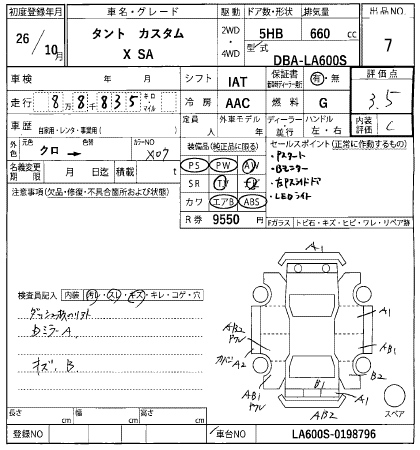 初度登録年月 車名・グレード 駆動 ドア数・形状 排気量 出品NO
26年 10月 タント カスタム 2WD・4WD 5HB 660 cc 7
X SA 型式 DBA-LA600S
車検 年 月 シフト IAT 保証書 有・無 評価点
走行 8万8千835 キロ・マイル 冷房 AAC 燃料 G 3.5
車歴 自家用・レンタ・事業用( ) 定員 人 外車モデル 年 ディーラー・並行 ハンドル 左・右 内装評価 C
外色 元色 クロ → 色替 カラーNO X07 装備品(純正品に限る) セールスポイント(正常に作動するもの)
名義変更期限 月 日迄 積載 t PS PW AW ・Pスタート
注意事項(欠品・修復・不具合箇所および状態) SR TV ナビ ・Bモニター
カワ エアB ABS ・左Pスライドドア
R券 9550 円 ・LEDライト
Fガラス トビ石・キズ・ヒビ・ワレ・リペア跡
検査員記入 内装 汚レ・スレ・キズ・キレ・コゲ・穴
A1
A1
AB2
AB1
A2
B2
AB1
B1
A1
AB2
キズ、B
スペア
長さ cm 幅 cm 高さ cm
登録NO 車台NO LA600S-0198796